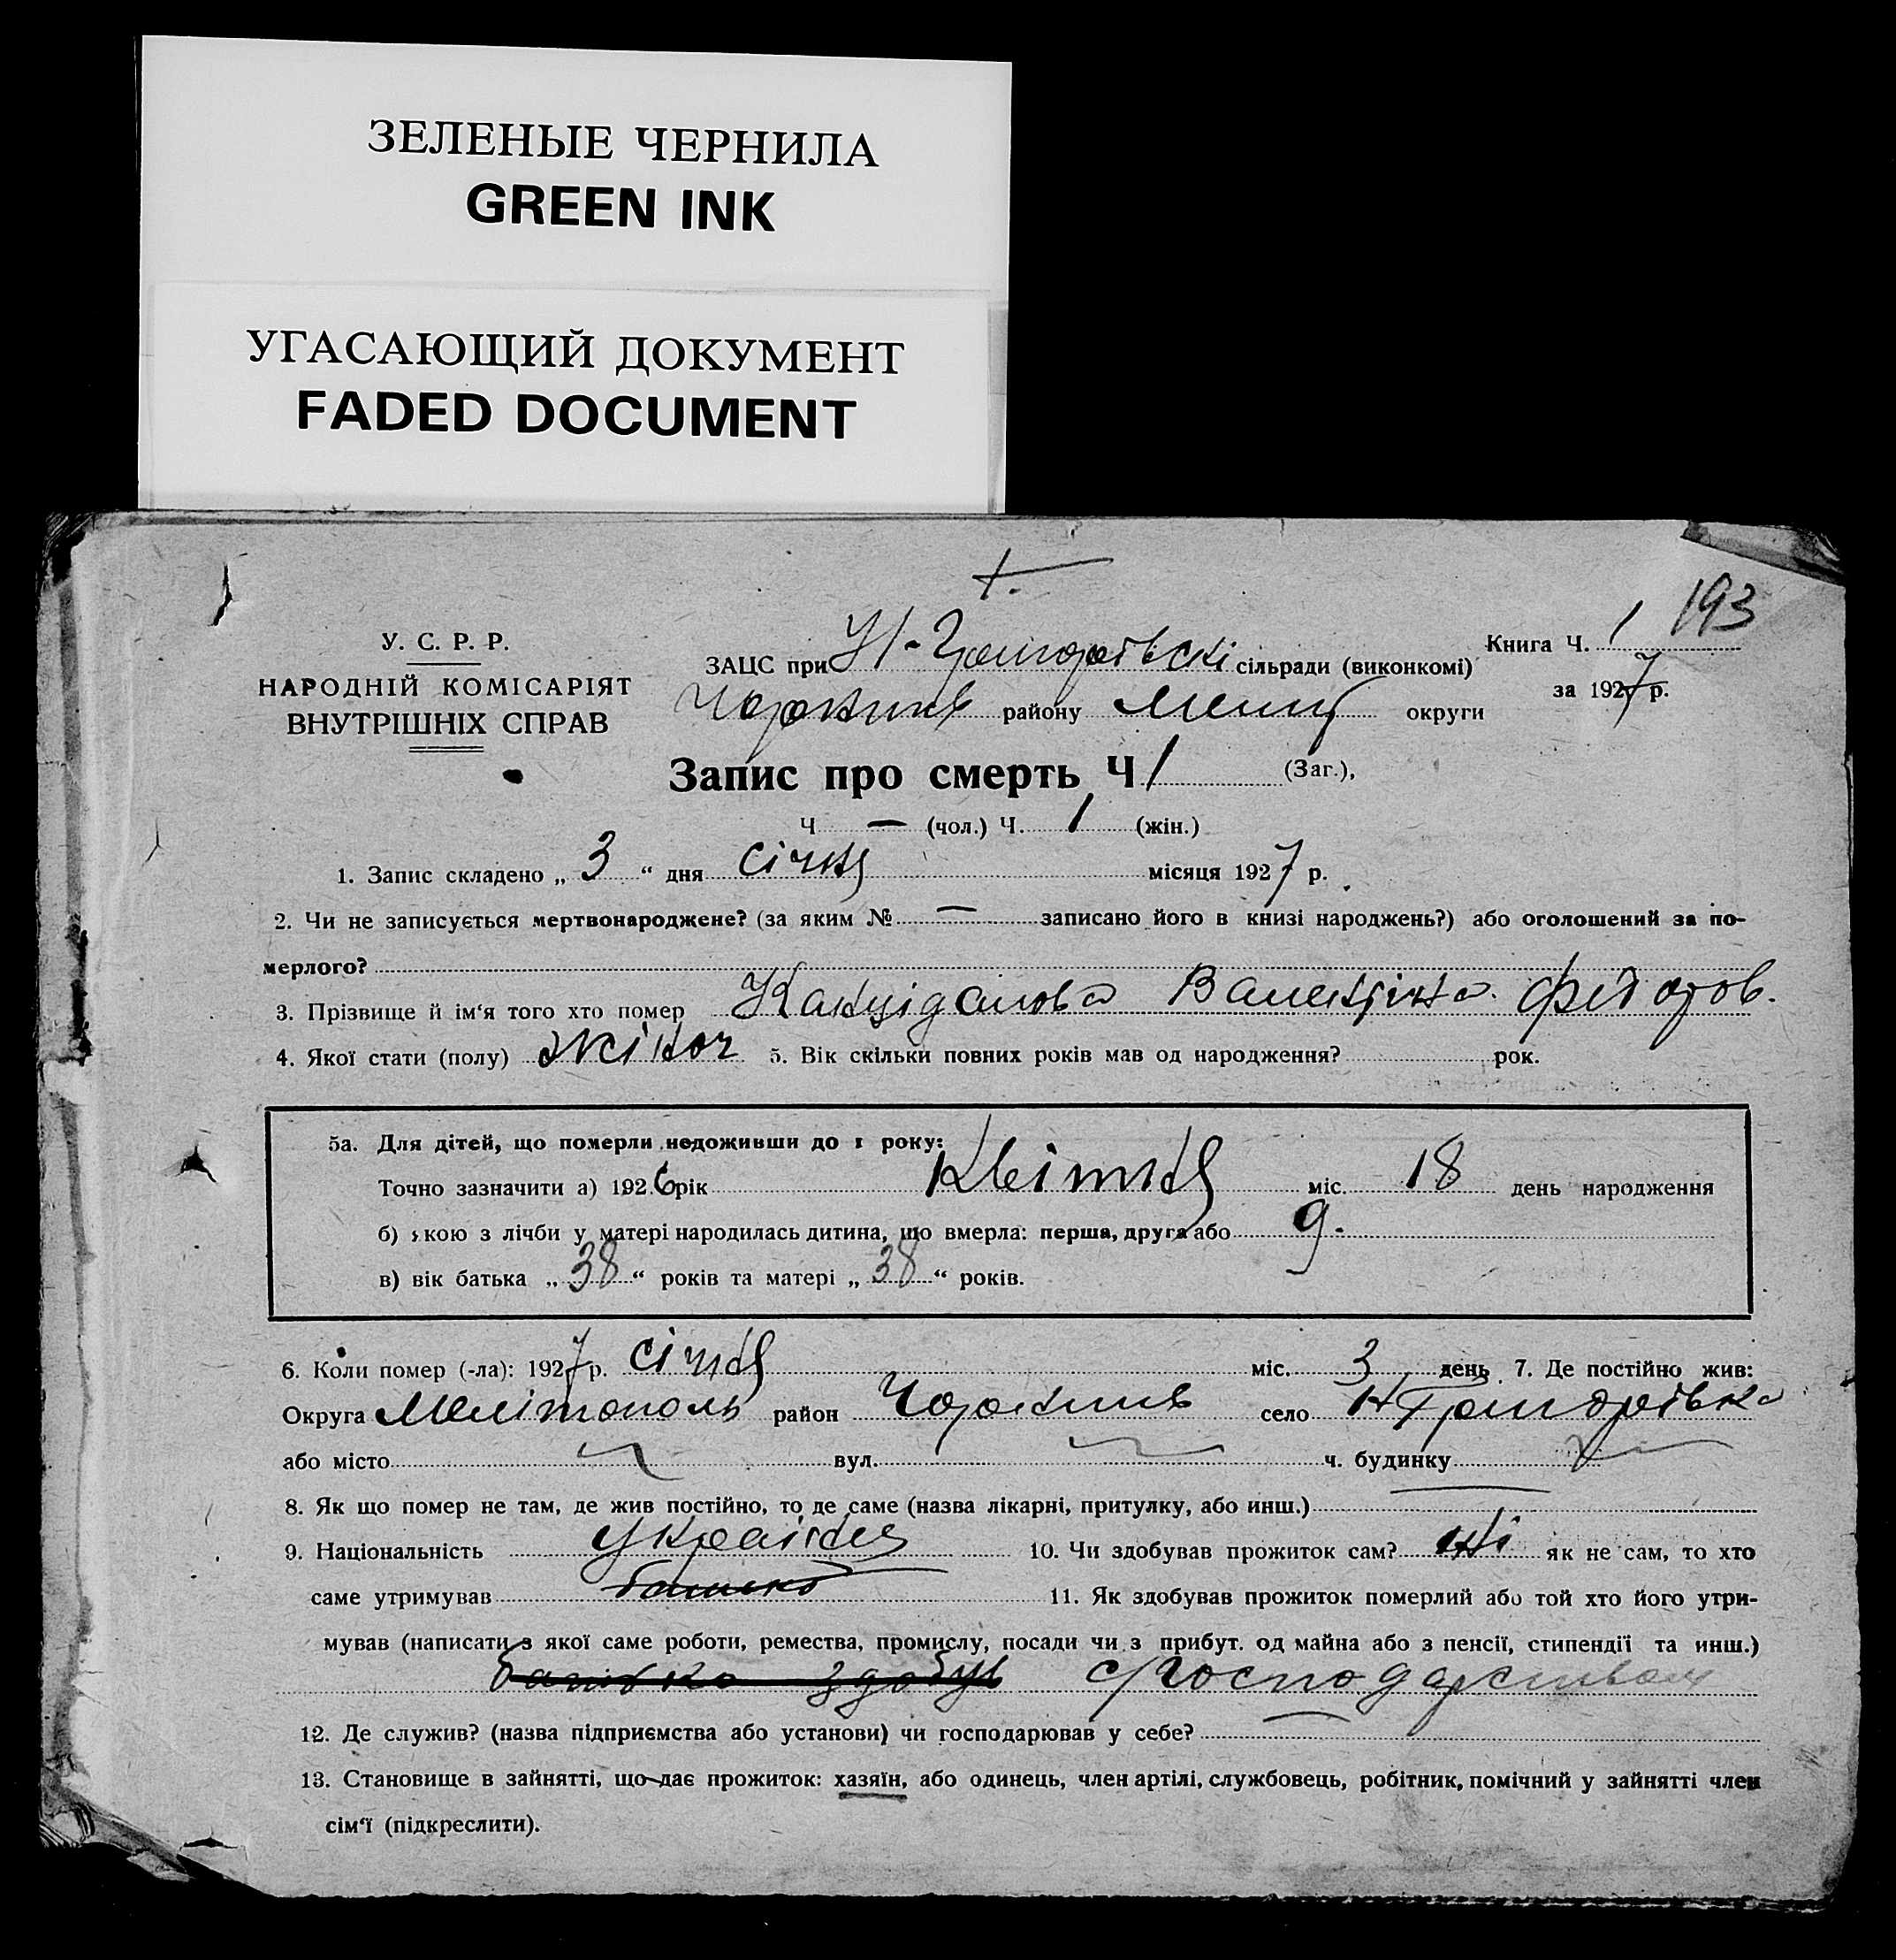 ЗЕЛЕНЫЕ ЧЕРНИЛА
GREEN INK
УГАСАЮЩИЙ ДОКУМЕНТ
FADED DOCUMENT
193
У. С. Р. Р.
НАРОДНІЙ КОМІСАРІЯТ
ВНУТРІШНІХ СПРАВ
Книга Ч. 1
за 1927 р.
ЗАЦС при Н-Григорівскі сільради (виконкомі)
району округи
Запис про смерть Ч 1 (Заг.),
Ч — (чол.) Ч. 1 (жін.)
1. Запис складено „ 3 “ дня січня місяця 1927 р.
2. Чи не записується мертвонароджене? (за яким № — записано його в книзі народжень?) або оголошений за по-
мерлого?
3. Прізвище й ім‘я того хто помер Валентина Федоров.
4. Якої стати (полу) жіноч 5. Вік скільки повних років мав од народження? рок.
5а. Для дітей, що померли недоживши до 1 року:
Точно зазначити а) 1926 рік Квітня міс. 18 день народження
б) якою з лічби у матері народилась дитина, що вмерла: перша, друга або 9.
в) вік батька „ 38 “ років та матері „ 38 “ років.
6. Коли помер (-ла): 1927 р. січня міс. 3 день 7. Де постійно жив:
Округа Мелітополь район село Н Григорівка
або місто вул. ч. будинку
8. Як що помер не там, де жив постійно, то де саме (назва лікарні, притулку, або инш.)
9. Національність 10. Чи здобував прожиток сам? ні як не сам, то хто
саме утримував батько 11. Як здобував прожиток померлий або той хто його утри-
мував (написати з якої саме роботи, ремества, промислу, посади чи з прибут. од майна або з пенсії, стипендії та инш.)
здобув господарством
12. Де служив? (назва підприємства або установи) чи господарював у себе?
13. Становище в зайнятті, що дає прожиток: хазяїн, або одинець, член артілі, службовець, робітник, помічний у зайнятті член
сім‘ї (підкреслити).